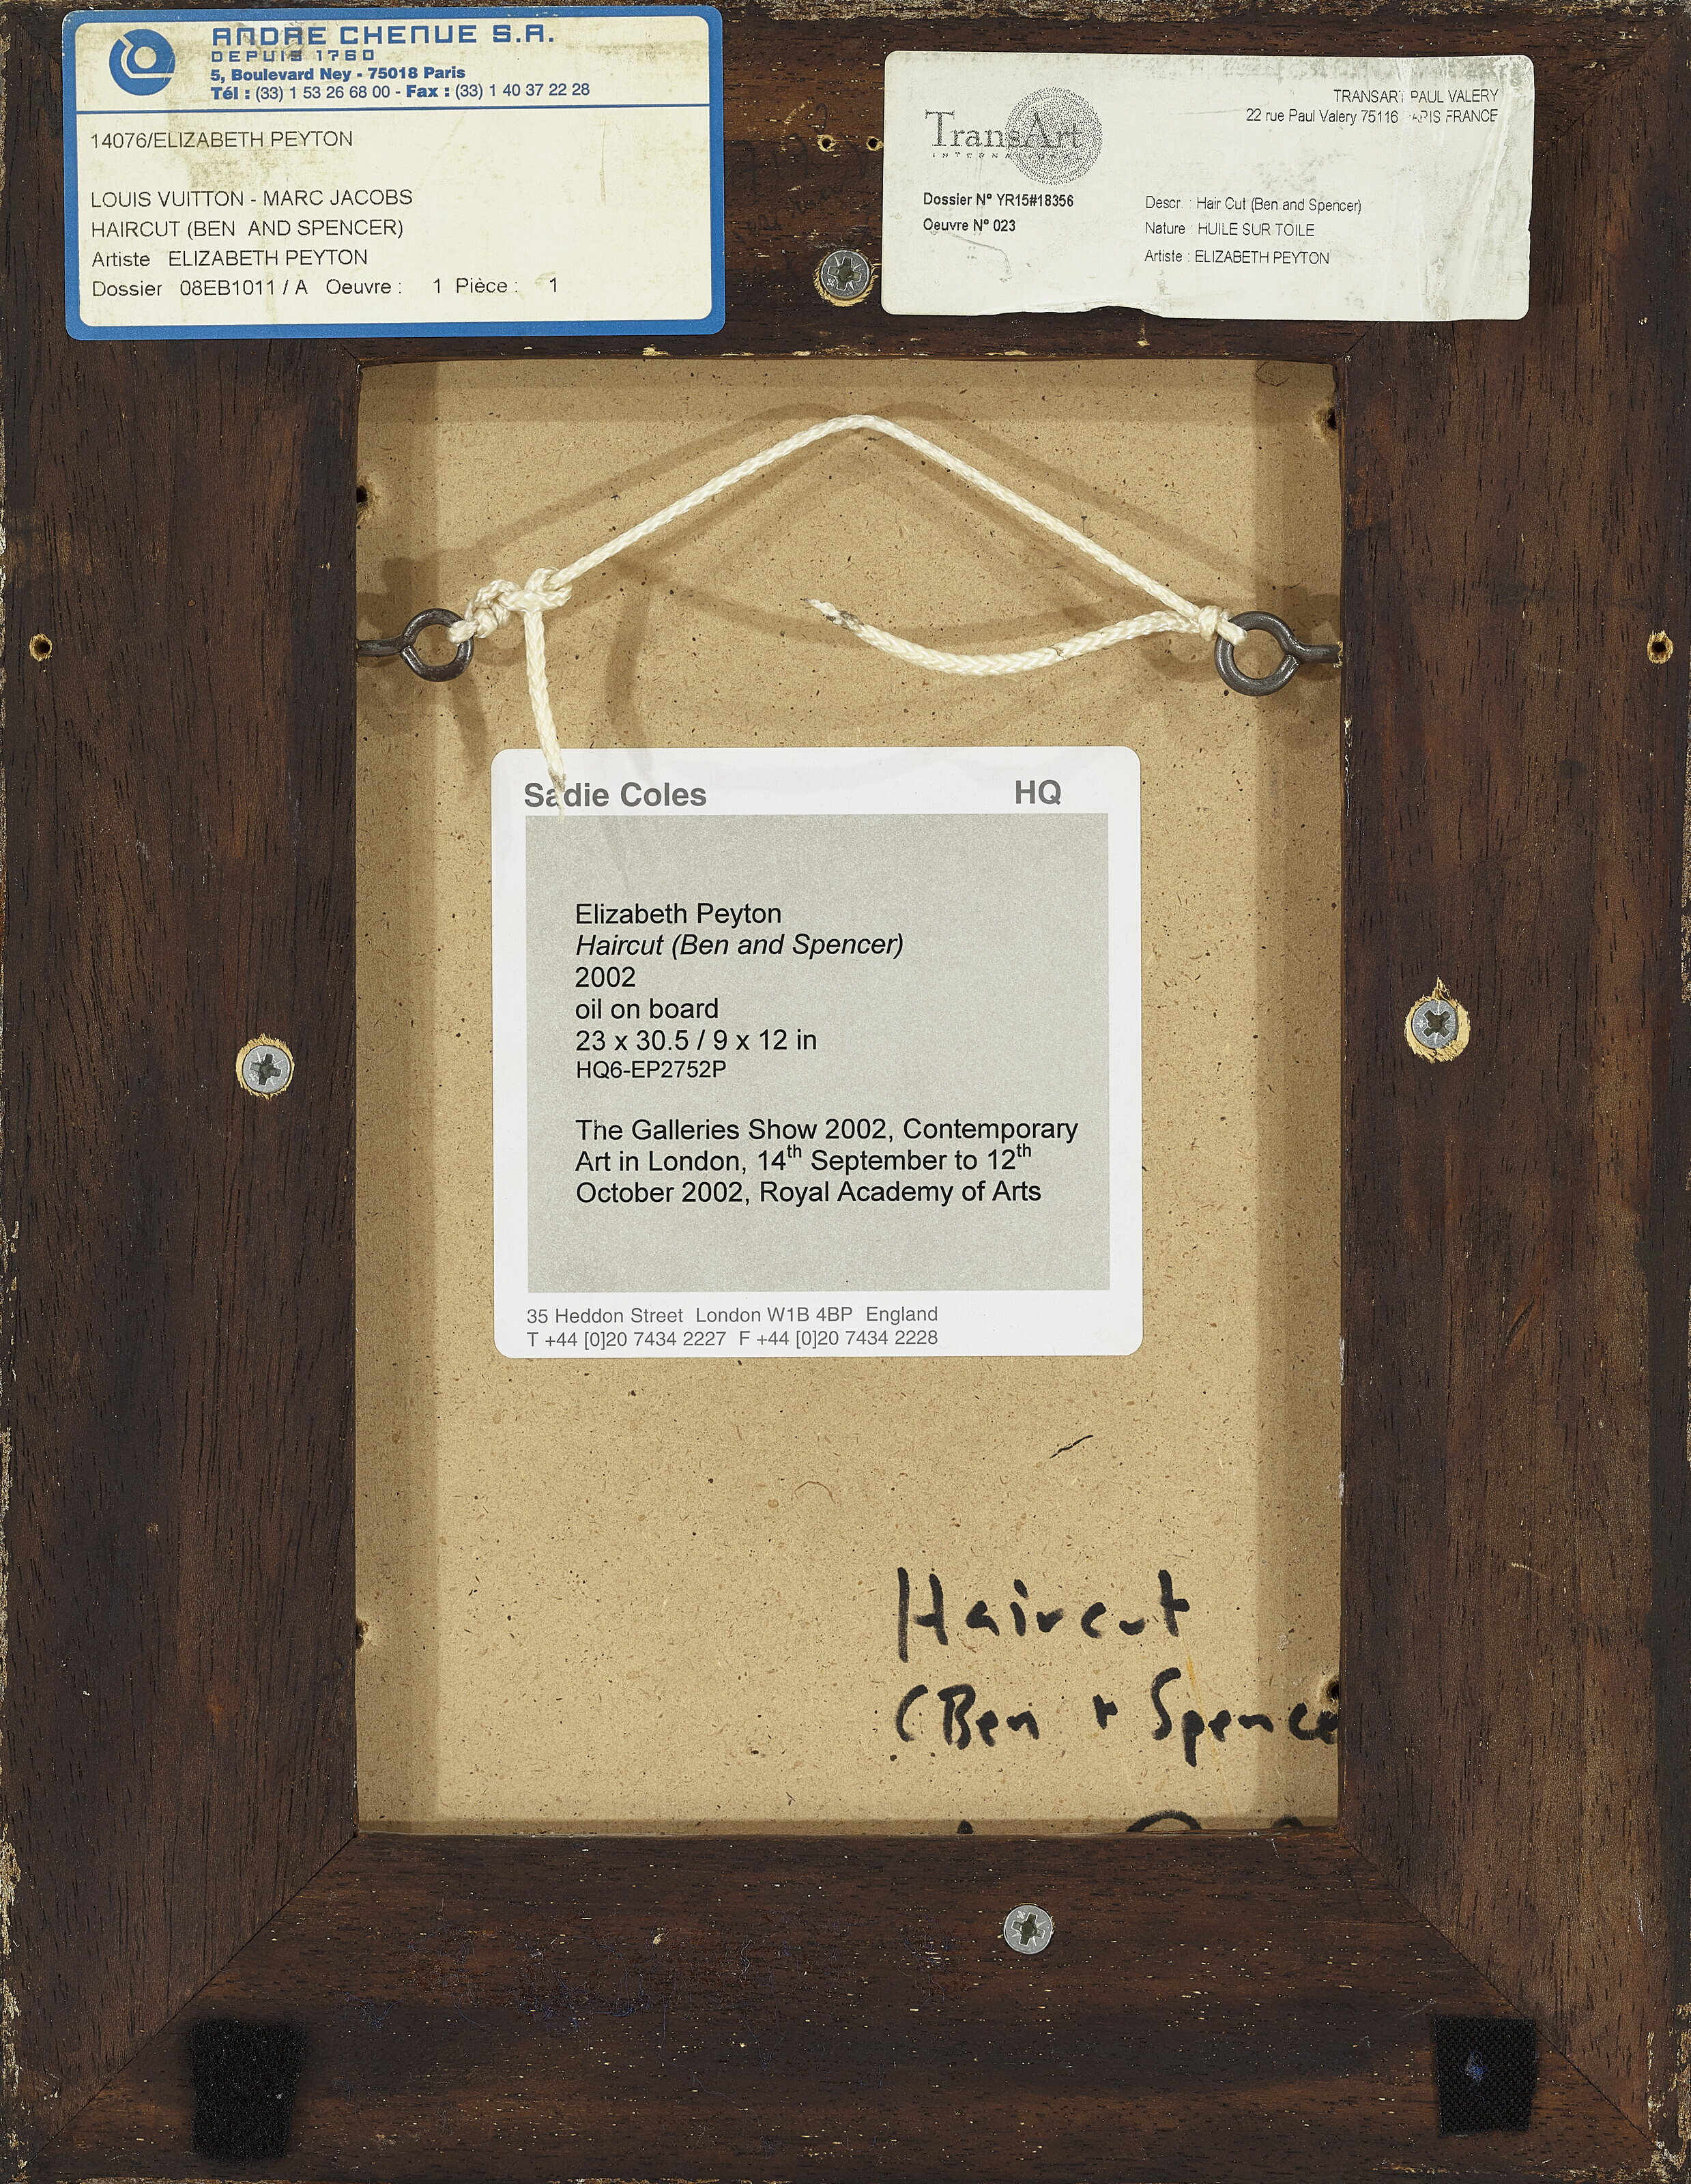 ANDRE CHENUE S.A.
DEPUIS 1760
5, Boulevard Ney - 75018 Paris
Tél : (33) 1 53 26 68 00 - Fax : (33) 1 40 37 22 28
14076/ELIZABETH PEYTON
LOUIS VUITTON - MARC JACOBS
HAIRCUT (BEN AND SPENCER)
Artiste ELIZABETH PEYTON
Dossier 08EB1011 / A Oeuvre : 1 Pièce : 1
TransArt
INTERNATIONAL
TRANSART PAUL VALERY
22 rue Paul Valery 75116 PARIS FRANCE
Dossier N° YR15#18356
Oeuvre N° 023
Descr. : Hair Cut (Ben and Spencer)
Nature : HUILE SUR TOILE
Artiste : ELIZABETH PEYTON
Sadie Coles HQ
Elizabeth Peyton
Haircut (Ben and Spencer)
2002
oil on board
23 x 30.5 / 9 x 12 in
HQ6-EP2752P
The Galleries Show 2002, Contemporary
Art in London, 14th September to 12th
October 2002, Royal Academy of Arts
35 Heddon Street London W1B 4BP England
T +44 [0]20 7434 2227 F +44 [0]20 7434 2228
Haircut
(Ben + Spence